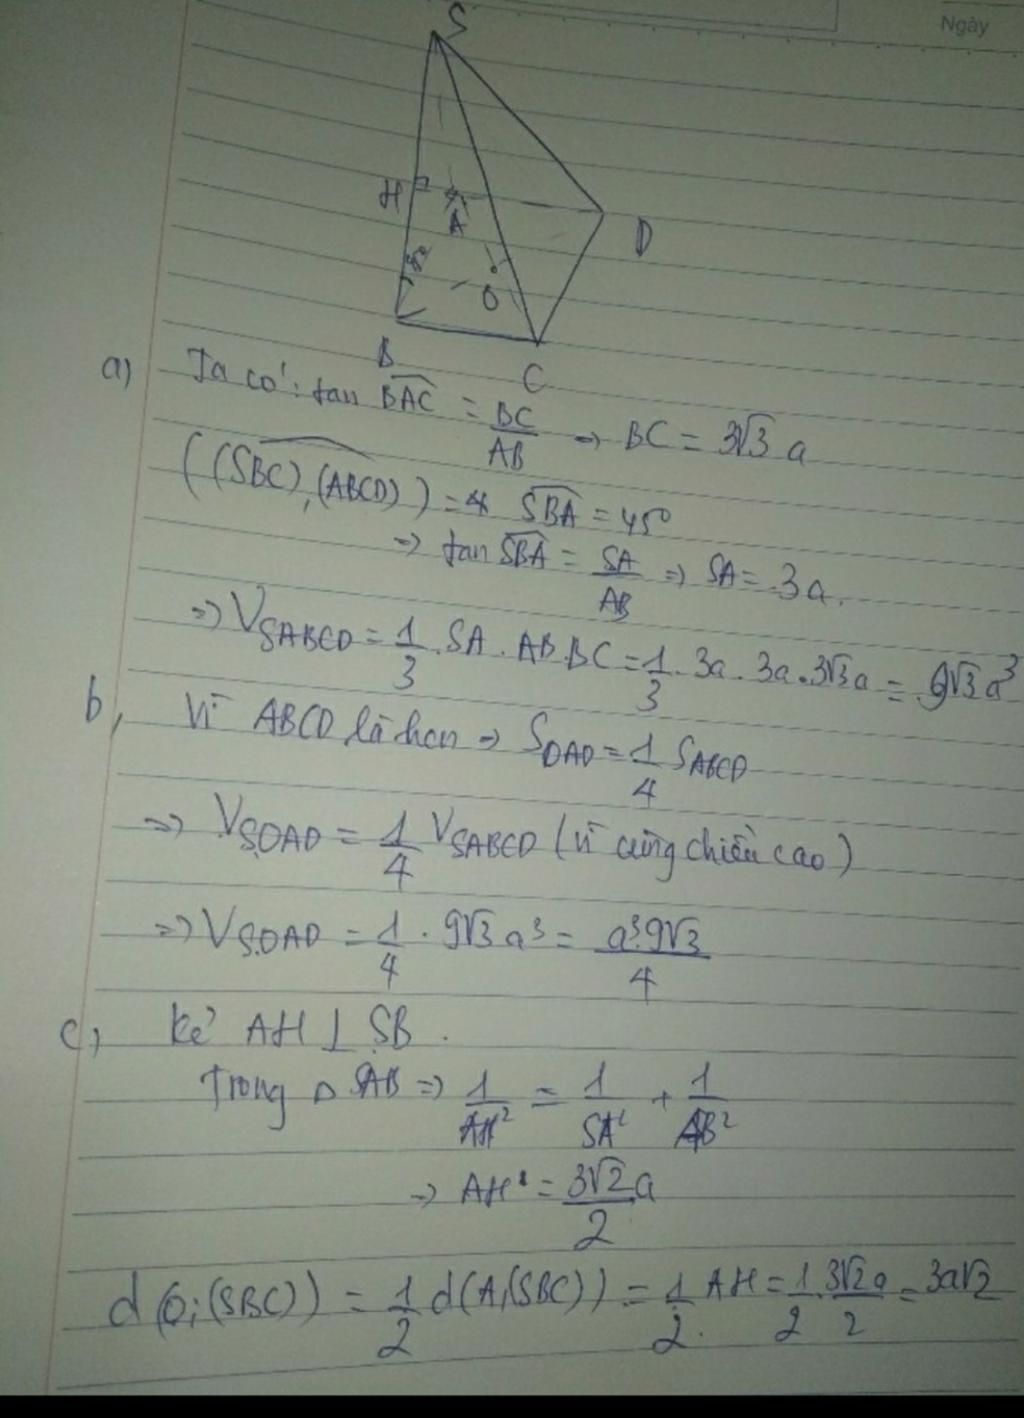 Ngày
S
H
A
D
O
B
C
a) Ta có: tan BAC = BC/AB => BC = 3√3 a
((SBC),(ABCD)) = SBA = 45°
=> tan SBA = SA/AB => SA = 3a.
=> VSABCD = 1/3 . SA . AB . BC = 1/3 . 3a . 3a . 3√3a = 9√3 a³
b, Vì ABCD là hcn => SOAD = 1/4 SABCD
=> VS.OAD = 1/4 VSABCD (vì cùng chiều cao)
=> VS.OAD = 1/4 . 9√3 a³ = a³9√3/4
c, Kẻ AH ⊥ SB.
Trong Δ SAB => 1/AH² = 1/SA² + 1/AB²
=> AH = 3√2/2 a
d(O;(SBC)) = 1/2 d(A,(SBC)) = 1/2 . AH = 1/2 . 3√2a/2 = 3a√2